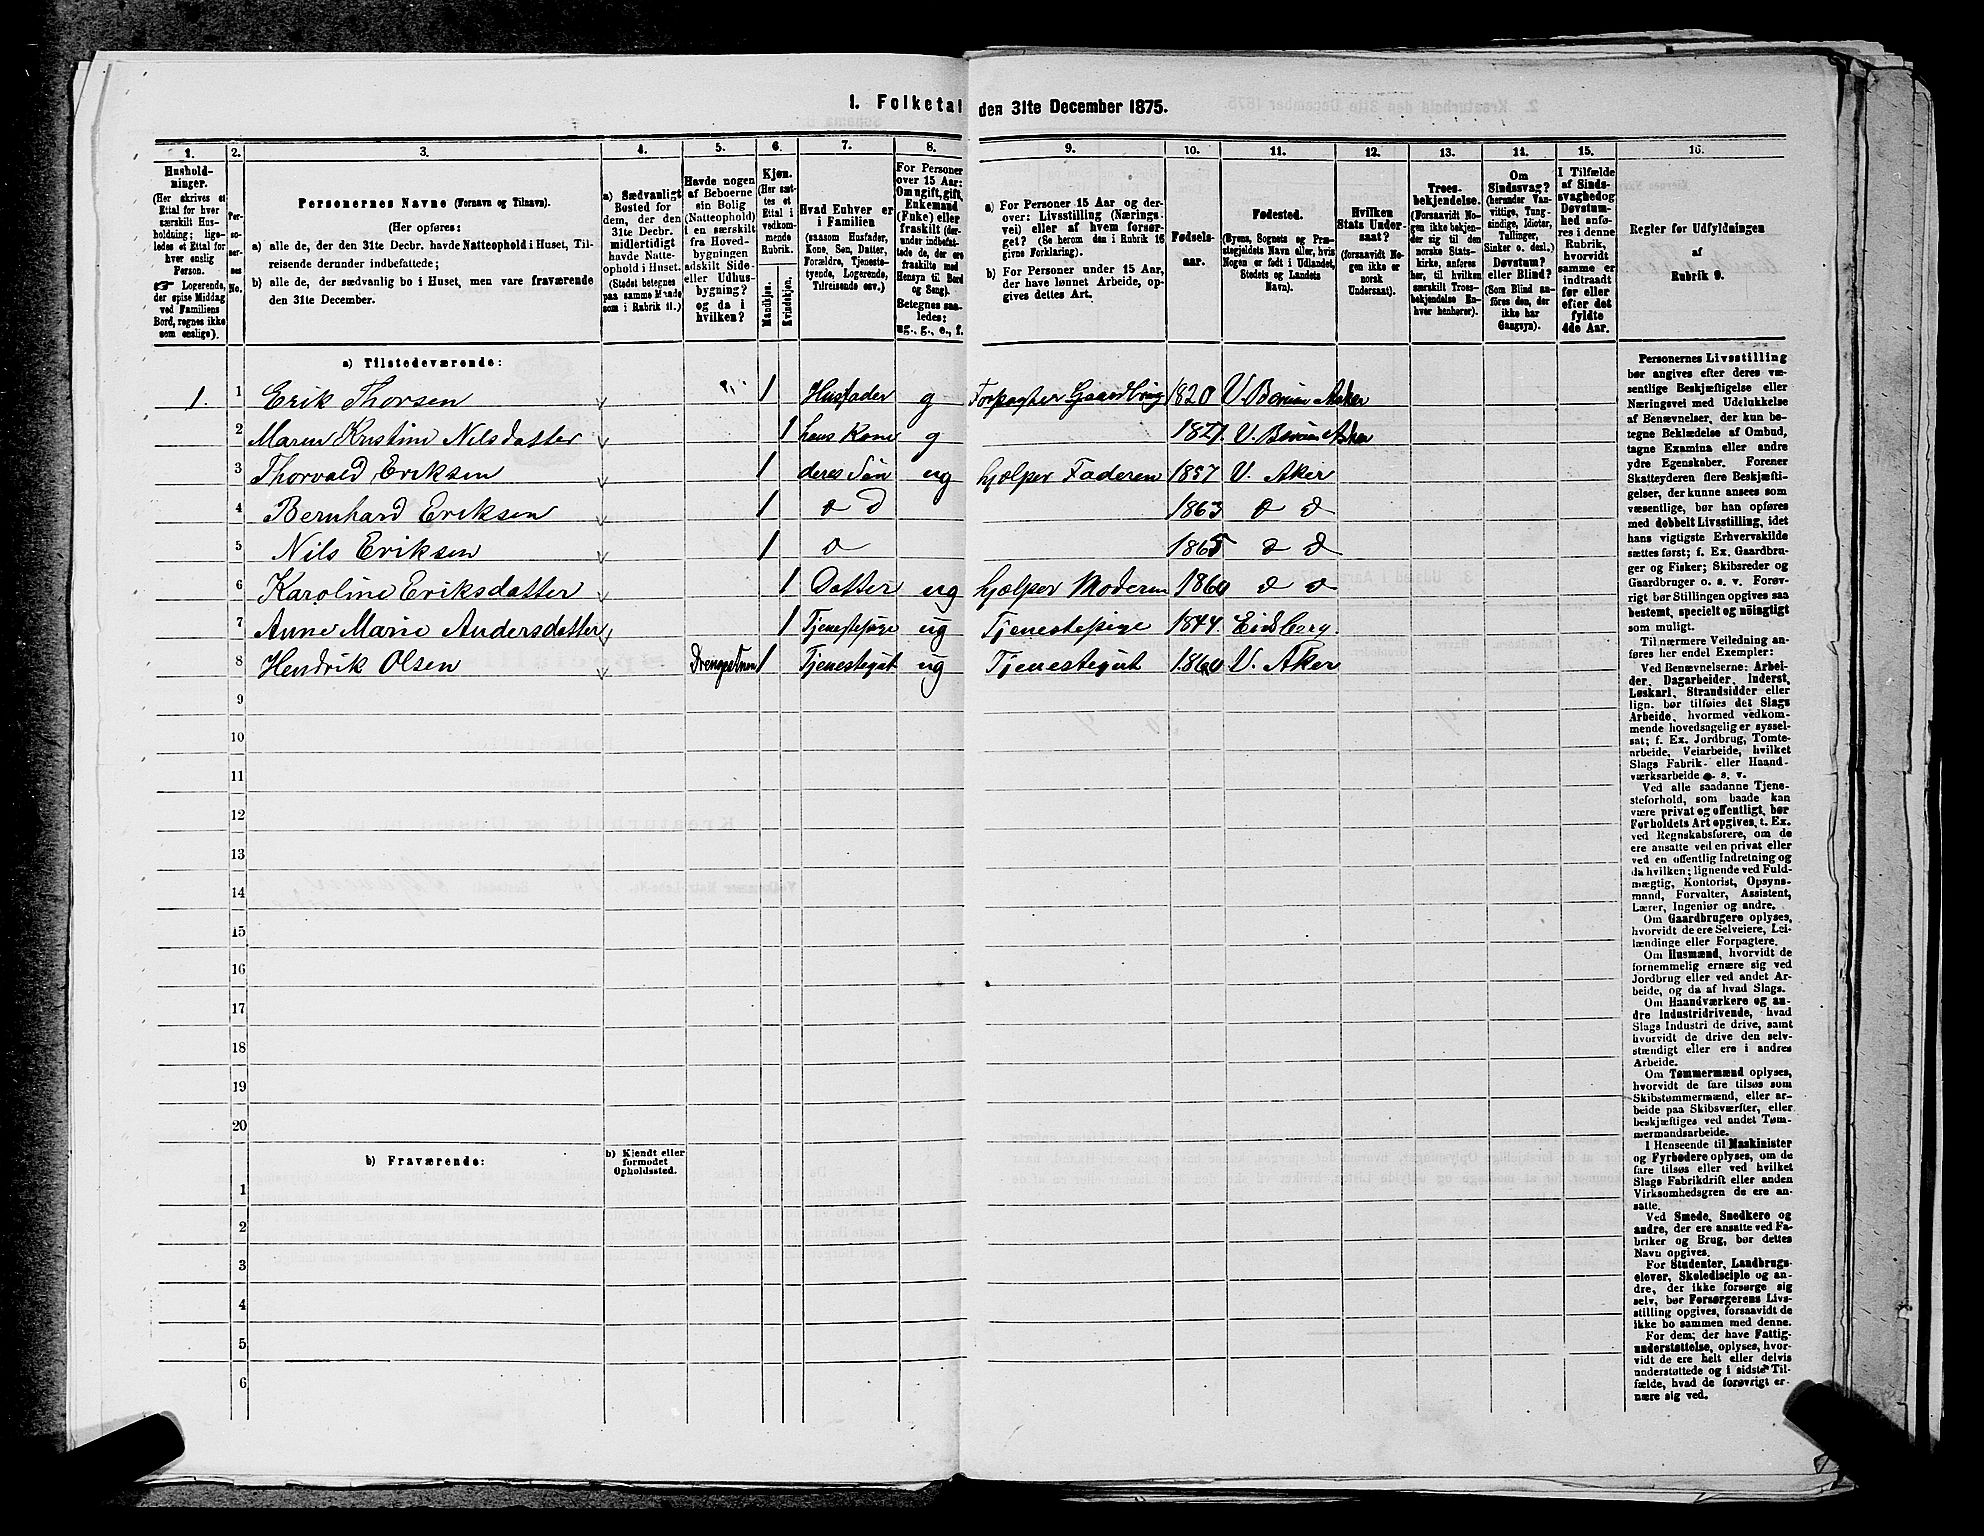 1. Folketal den 31te December 1875.
1. 2. 3. 4. 5. 6. 7. 8. 9. 10. 11. 12. 13. 14. 15. 16.
Husholdninger.
(Her skrives et
Ettal for hver
særskilt Husholdning;
ligeledes et Ettal for
hver enslig
Person.
☛ Logerende,
der spise Middag
ved Familiens
Bord, regnes ikke
som enslige).
Personernes No.
Personernes Navne (Fornavn og Tilnavn).
(Her opføres:
a) alle de, der den 31te Decbr. havde Natteophold i Huset, Tilreisende derunder indbefattede;
b) alle de, der sædvanlig bo i Huset, men vare fraværende
den 31te December.
a) Sædvanligt
Bosted for
dem, der den
31te Decbr.
midlertidigt
havde Natteophold i Huset.
(Stedet betegnes
paa samme Maade
som i Rubrik 11.)
Havde nogen
af Beboerne
sin Bolig
(Natteophold)
i en særskilt
fra Hovedbygningen
adskilt Side-
eller Udhusbygning?
og da i
hvilken?
Kjøn.
(Her sættes et
Ettal i
vedkommende
Rubrik.
Mandkjøn.
Kvindekjøn.
Hvad Enhver er
i Familien
(saasom Husfader,
Kone, Søn, Datter,
Forældre, Tjenestetyende, Logerende,
Tilreisende osv.)
For Personer
over 15 Aar:
Om ugift, gift,
Enkemand
(Enke) eller
fraskilt (derunder indbefattede de, der ere
fraskilte med
Hensyn til Bord
og Seng).
Betegnes saaledes:
ug., g., e., f.
a) For Personer 15 Aar og derover: Livsstilling (Næringsvei) eller af hvem forsørget? (Se herom den i Rubrik 16
givne Forklaring).
b) For Personer under 15 Aar,
der have lønnet Arbeide, opgives dettes Art.
Fødselsaar.
Fødested.
(Byens, Sognets og Præstegjeldets Navn, eller, hvis
Nogen er født i Udlandet,
Stedets og Landets
Navn).
Hvilken
Stats Undersaat?
(forsaavidt Nogen ikke er
norsk
Undersaat).
Troesbekjendelse.
(Forsaavidt Nogen ikke bekjender sig til den
norske Statskirke, anføres
her, til hvilken
særskilt Troesbekjendelse Enhver henhører).
Om
Sindssvag?
(herunder Vanvittige, Tungsindige, Idioter,
Tullinger,
Sinker o. desl.)
Døvstum?
eller Blind?
(Som Blind anføres den, der
ikke har
Gangsyn).
I Tilfælde
af Sindssvaghed og
Døvstumhed anføres i denne
Rubrik,
hvorvidt
samme er
indtraadt
før eller
efter det
fyldte
4de Aar.
Regler for Udfyldningen
af
Rubrik 9.
a) Tilstedeværende:
1. 1 Erik Thorsen 1 Husfader g Forpagter Gaardbrug 1820 V. Bærum Asker
2 Maren Kristine Nilsdatter 1 hans Kone g V. Bærum Asker
3 Thorvald Eriksen 1 deres Søn ug hjælper Faderen 1857 V. Aker
4 Bernhard Eriksen 1 1863
5 Nils Eriksen 1 1865
6 Karoline Eriksdatter 1 Datter ug hjælper Moderen 1860
7 Anne Marie Andersdatter 1 Tjenestepige ug Tjenestepige 1844. Eidsberg.
8 Hendrik Olsen 1 Tjenestegut ug Tjenestegut 1860 V. Aker
9
10
11
12
13
14
15
16
17
18
19
20
b) Fraværende:
b) Kjendt eller
formodet
Opholdssted.
1
2
3
4
5
6
Personernes Livsstilling
bør angives efter deres væsentlige Beskjæftigelse eller
Næringsvei med Udelukkelse
af Benævnelser, der kun betegne Beklædelse af Ombud,
tagne Examina eller andre
ydre Egenskaber. Forener
Skatteyderen flere Beskjæftigelser, der kunne ansees som
væsentlige, bør han opføres
med dobbelt Livsstilling, idet
hans vigtigste Erhvervskilde
sættes først; f. Ex. Gaardbruger og Fisker; Skibsreder og
Gaardbruger o. s. v. Forøvrigt bør Stillingen opgives saa
bestemt, specielt og nøiagtigt
som muligt.
Til nærmere Veiledning anføres her endel Exempler:
Ved Benævnelserne: Arbeider, Dagarbeider, Inderst,
Løskarl, Strandsidder eller
lign. bør tilføies det Slags
Arbeide, hvormed vedkommende hovedsagelig er sysselsat; f. Ex. Jordbrug, Tomtearbeide, Veiarbeide, hvilket
Slags Fabrik- eller Haandværksarbeide o. s. v.
Ved alle saadanne Tjenesteforhold, som baade kan
være privat og offentligt, bør
Forholdets Art opgives, t. Ex.
ved Regnskabsførere, om de
ere ansatte ved en privat eller
ved en offentlig Indretning og
da hvilken; lignende ved Fuldmægtig, Kontorist, Opsynsmand, Forvalter, Assistent,
Lærer, Ingeniør og andre.
Om Gaardbrugere oplyses,
hvorvidt de ere Selveiere, Leilændinge eller Forpagtere.
Om Husmænd, hvorvidt de
fornemmelig ernære sig ved
Jordbrug eller ved andet Arbeide, og da af hvad Slags.
Om Haandværkere og andre Industridrivende, hvad
Slags Industri de drive, samt
hvorvidt de drive den selvstændigt eller ere i andres
Arbeide.
Om Tømmermænd oplyses,
hvorvidt de fare tilsøs som
Skibstømmermænd, eller arbeide paa Skibsværfter, eller
beskjæftiges ved andet Tømmermandsarbeide.
I Henseende til Maskinister
og Fyrbødere oplyses, om de
fare tilsøs eller ved hvilket
Slags Fabrikdrift eller anden
Virksomhedsgren de ere ansatte.
Ved Smede, Snedkere og
andre, der ere ansatte ved Fabriker og Brug, bør dettes
Navn opgives.
For Studenter, Landbrugselever, Skoledisciple og andre, der ikke forsørge sig
selv, bør Forsørgerens Livsstilling opgives, forsaavidt de
ikke bo sammen med denne.
For dem, der have Fattigunderstøttelse, oplyses, hvorvidt de ere helt eller delvis
understøttede og i sidste Tilfælde, hvad de forøvrigt ernære sig ved.